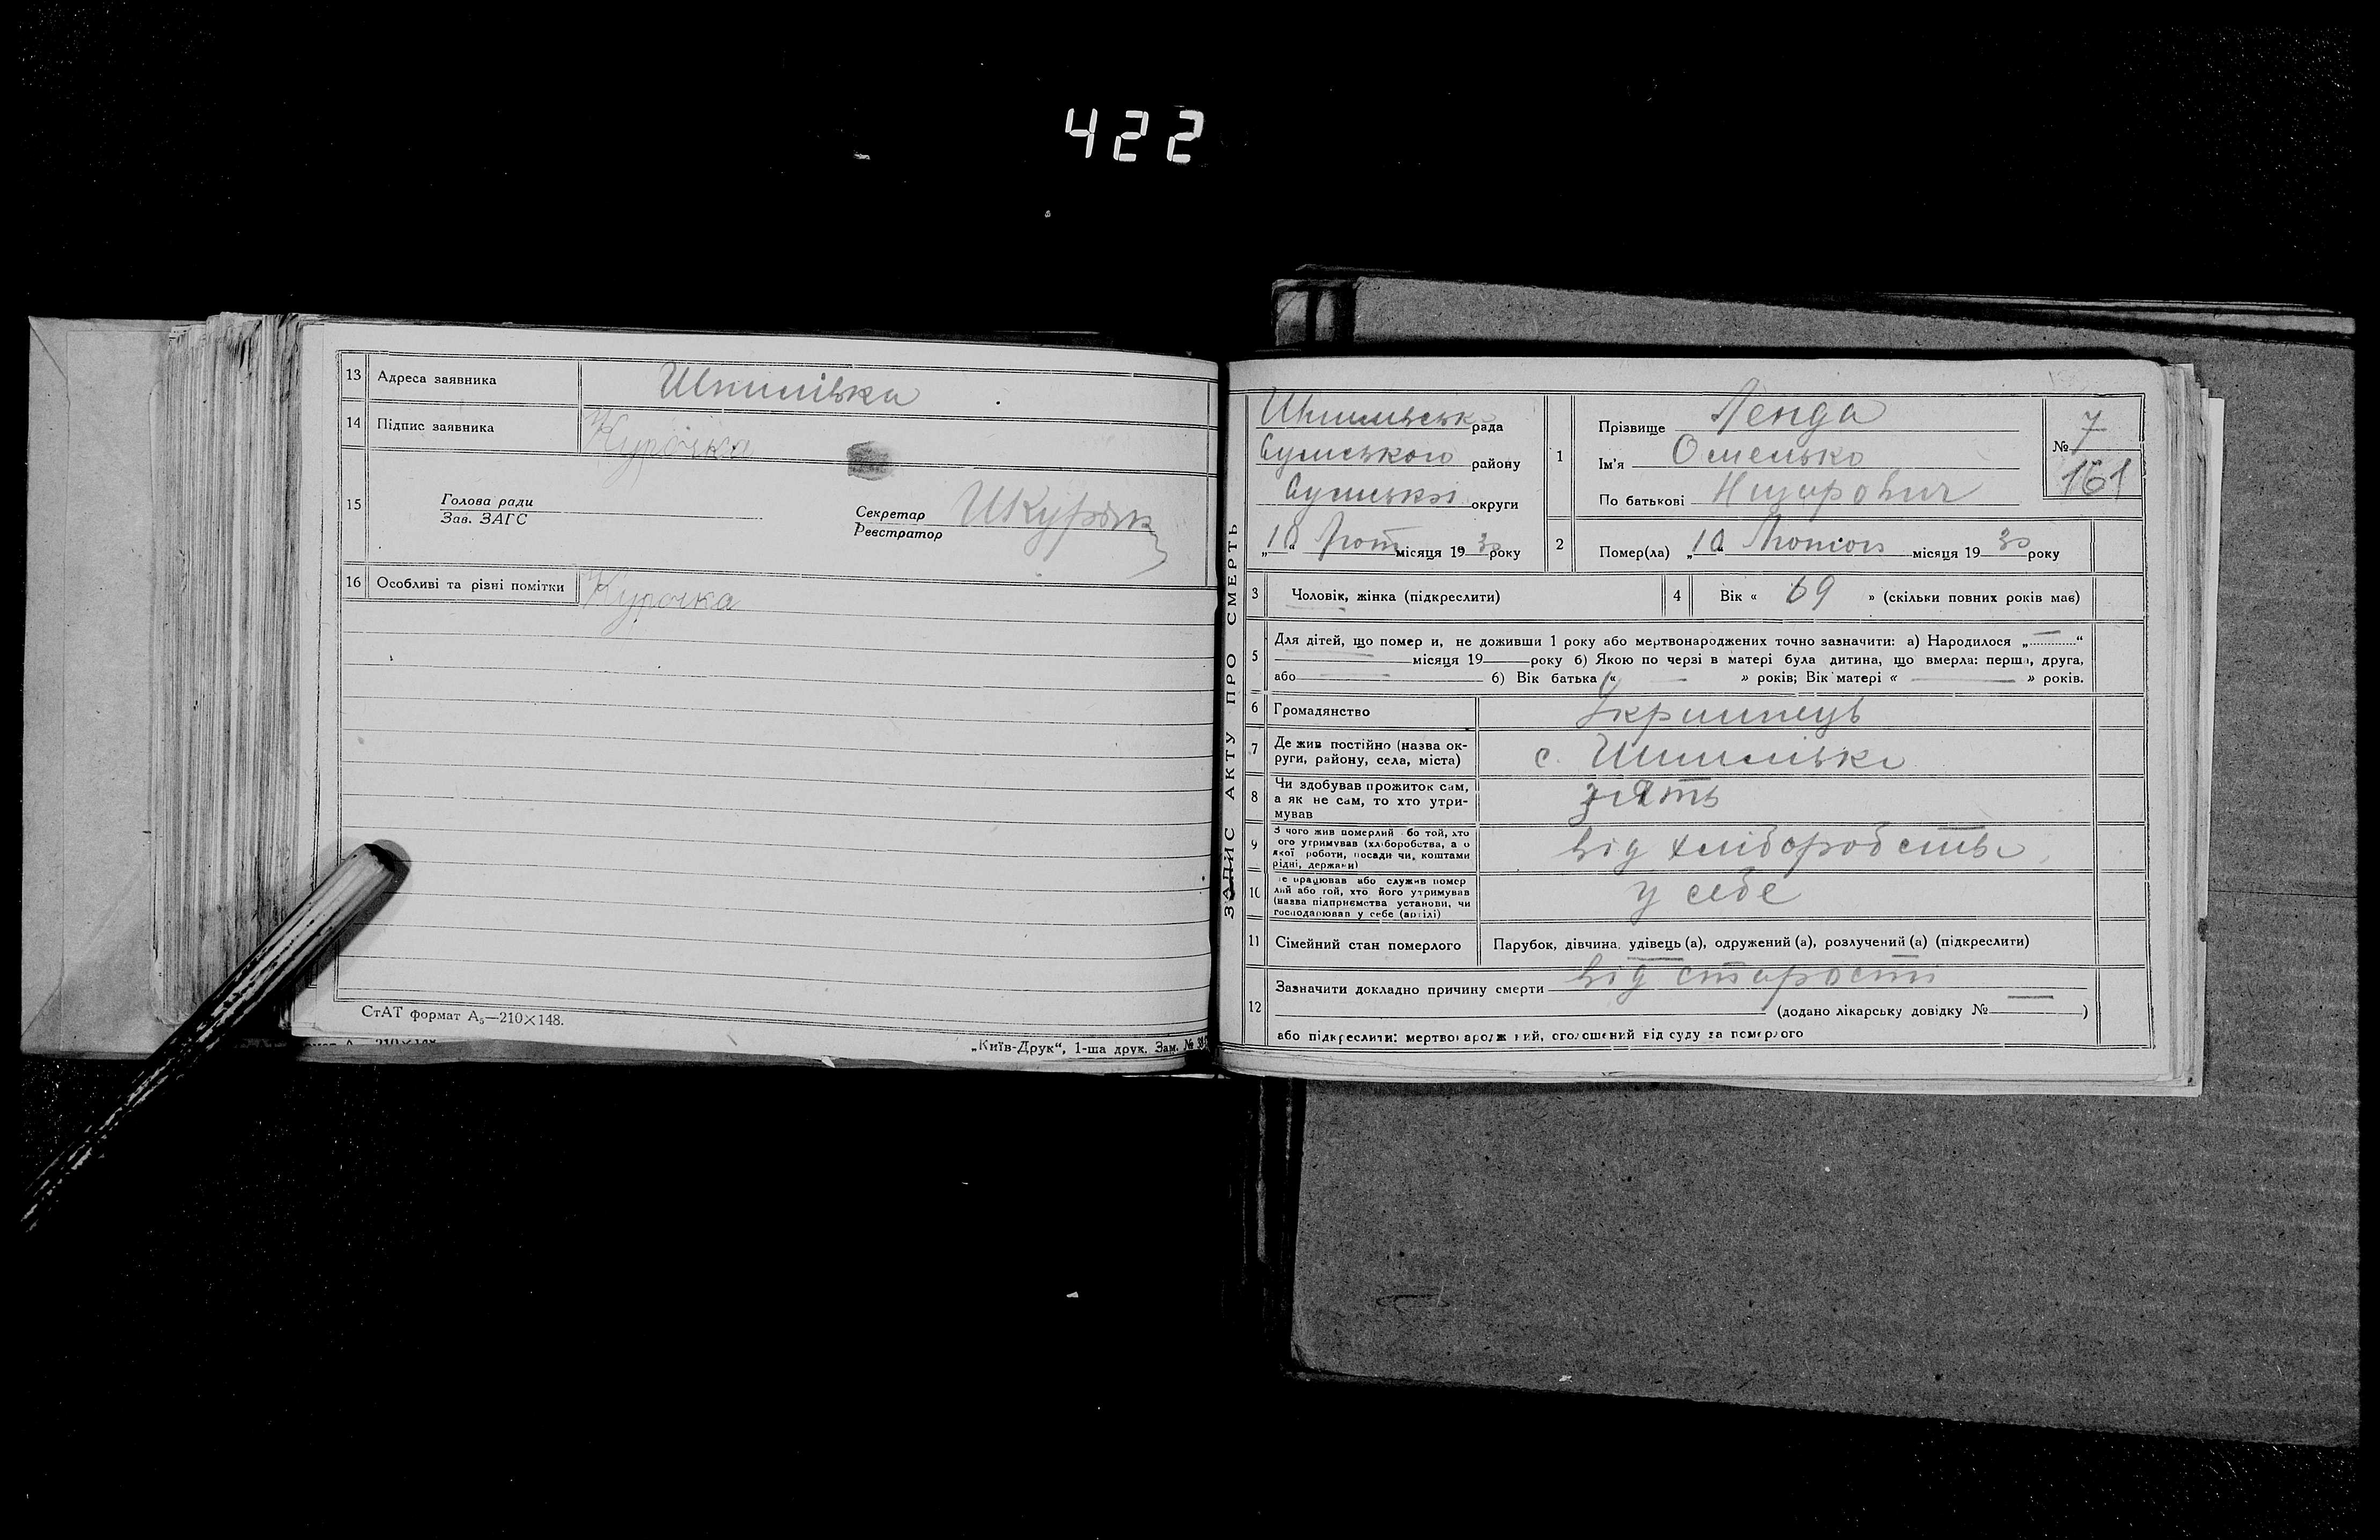 422
13 Адреса заявника Шпилівка
14 Підпис заявника Курочка
15 Голова ради
Зав. ЗАГС
Секретар
Реєстратор
16 Особливі та різні помітки Курочка
СтАТ формат А₅—210×148.
„Київ-Друк“, 1-ша друк. Зам. №
ЗАПИС АКТУ ПРО СМЕРТЬ
Шпилівськ рада
Сумського району
Сумської округи
„10“ Лют місяця 1930 року
1 Прізвище Ленда
Ім'я Омелько
По батькові
№ 7
161
2 Помер(ла) „10“ Лютого місяця 1930 року
3 Чоловік, жінка (підкреслити)
4 Вік « 69 » (скільки повних років має)
5 Для дітей, що помер и, не доживши 1 року або мертвонароджених точно зазначити: а) Народилося „............“
місяця 19 року б) Якою по черзі в матері була дитина, що вмерла: перша, друга,
або б) Вік батька « » років; Вік матері « » років.
6 Громадянство Українець
7 Де жив постійно (назва ок-
руги, району, села, міста) с. Шпилівка
8 Чи здобував прожиток сам,
а як не сам, то хто утри-
мував зять
9 З чого жив померлий бо той, хто
ого утримував (хліборобства, а о
якої роботи, посади чи, коштами
рідні, держави) від хліборобства
10 е працював або служив помер
лий або той, хто його утримував
(назва підприємства установи, чи
господарював у себе (артілі) у себе
11 Сімейний стан померлого Парубок, дівчина, удівець (а), одружений (а), розлучений (а) (підкреслити)
12 Зазначити докладно причину смерти від старости
(додано лікарську довідку № )
або підкреслити: мертвонародж ний, оголошений від суду за померлого